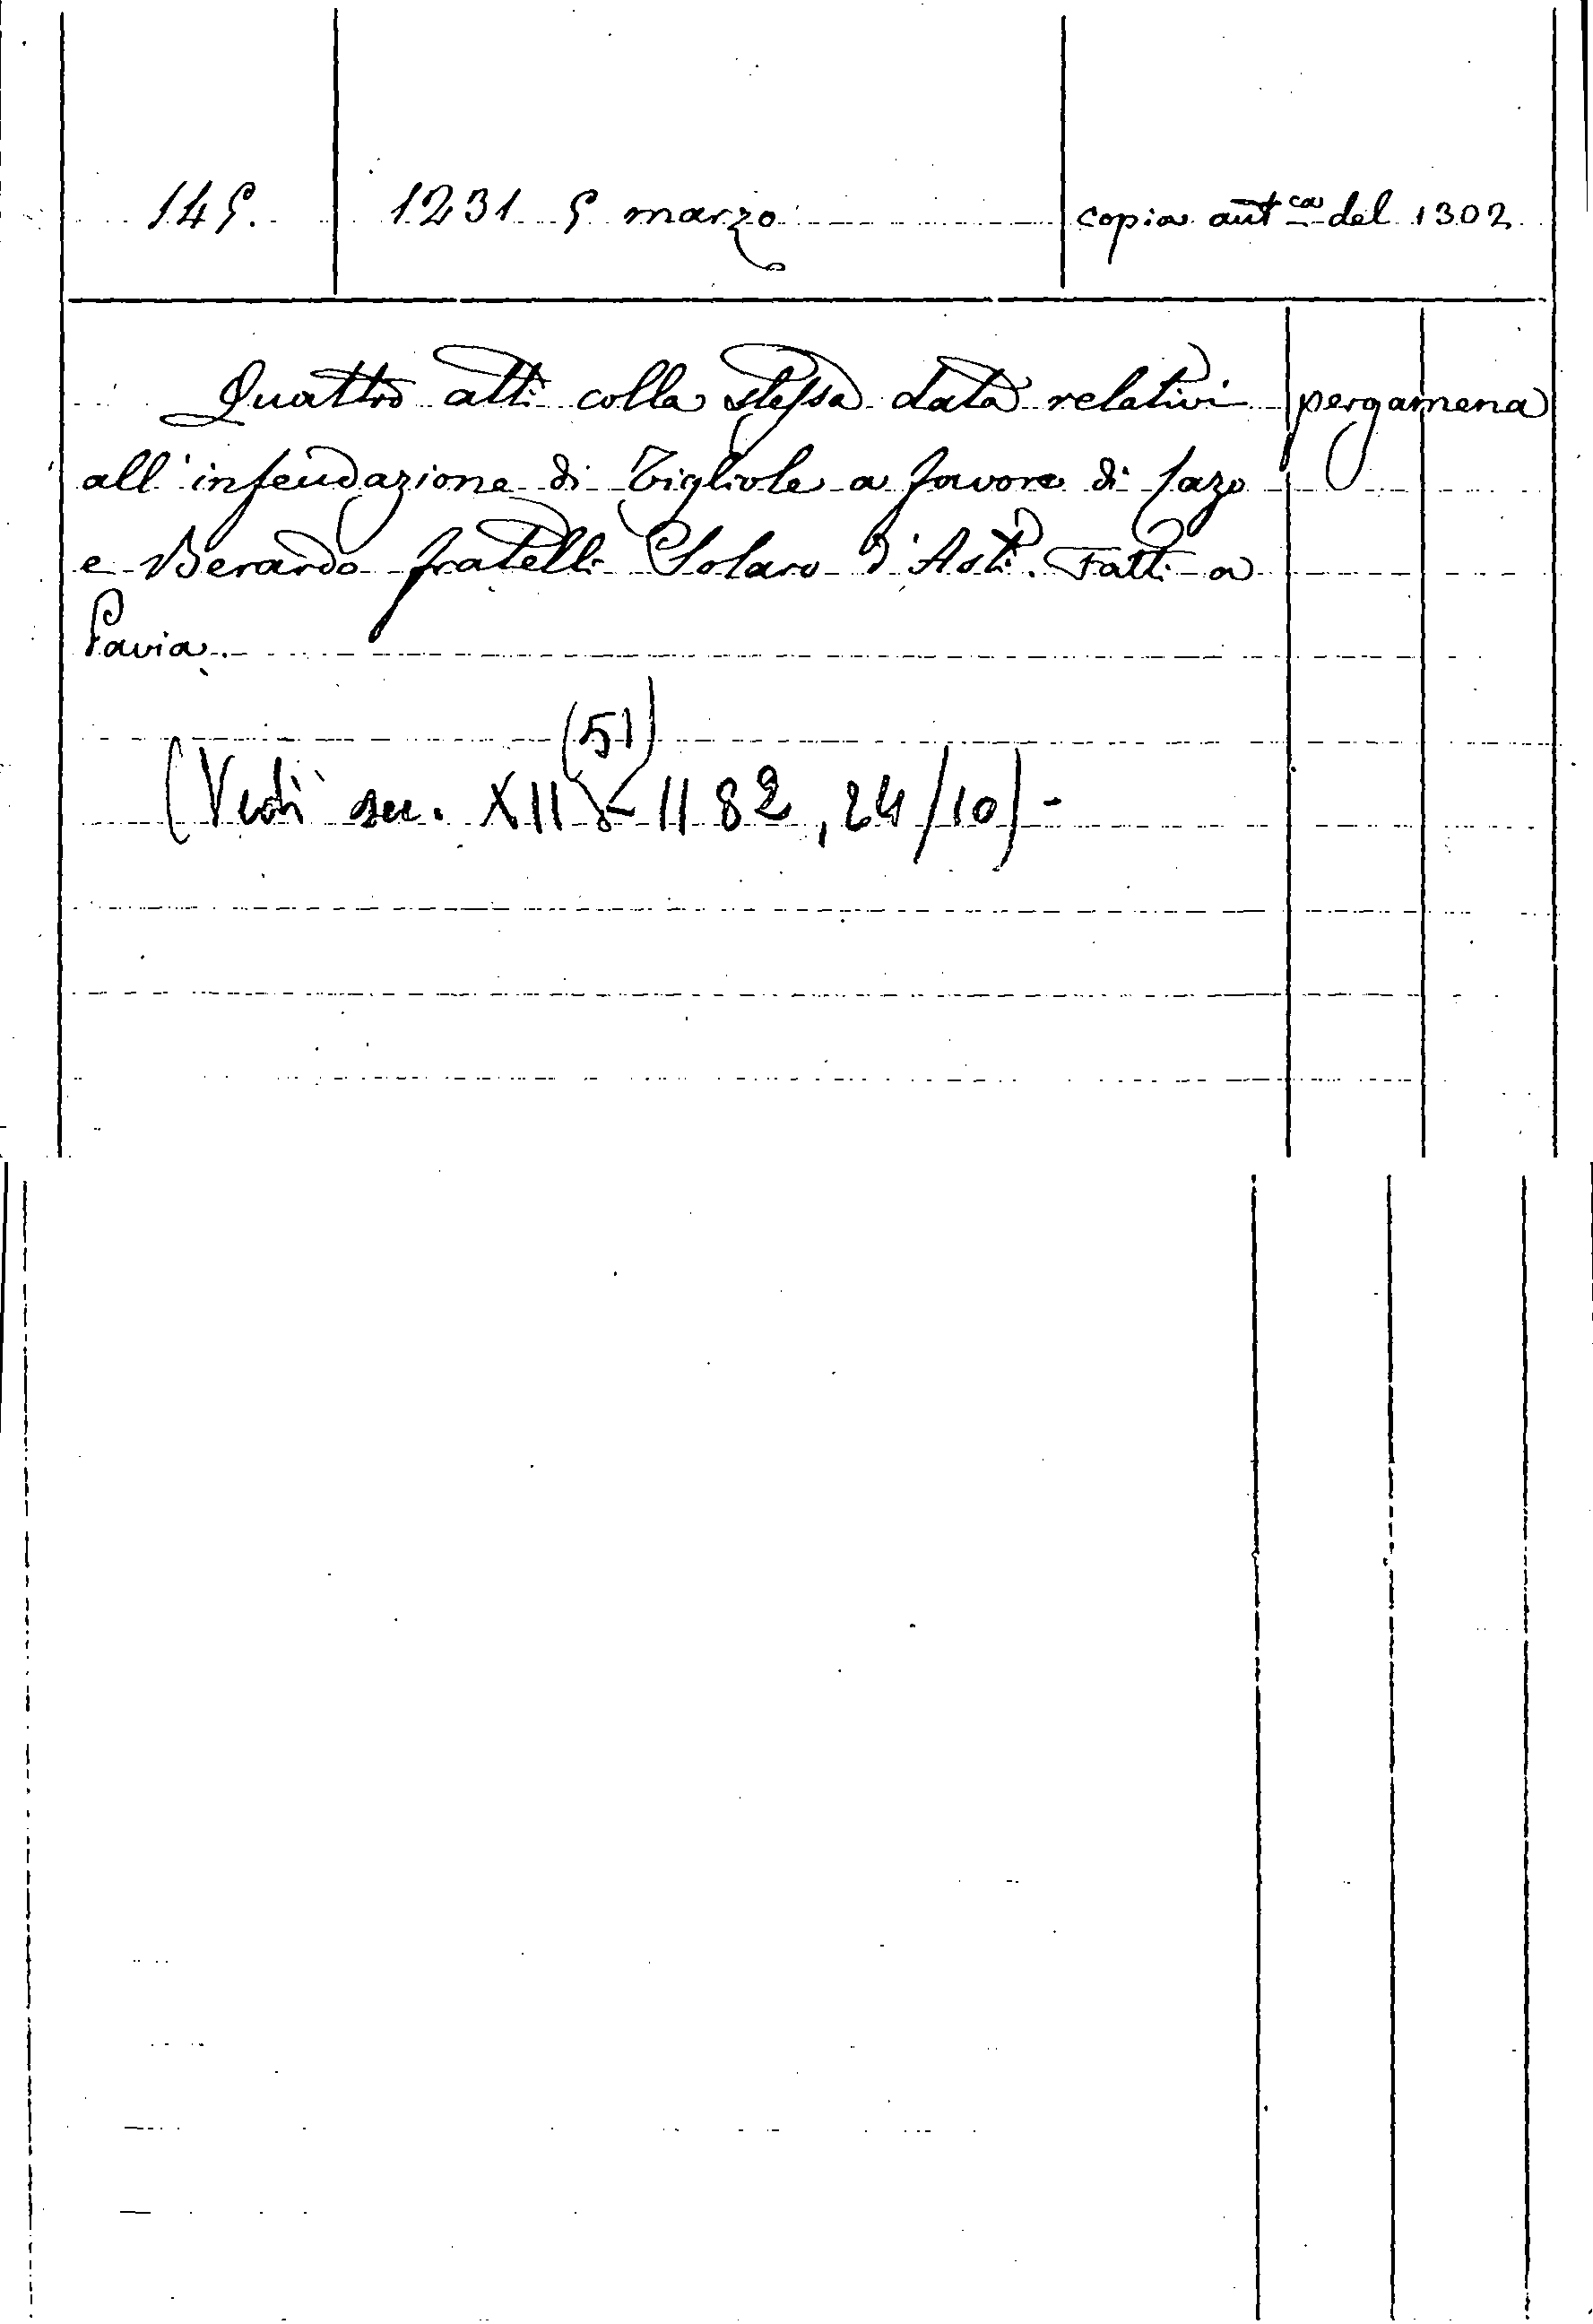 145. 1231 5 marzo copia autca del 1302
Quattro atti colla stessa data relativi pergamena
all'infeudazione di Tigliole a favore di Jazo
e Berardo fratelli Solaro d'Asti. Fatti a
Pavia.
(51)
(Vedi sec. XII - 1182, 24/10) -